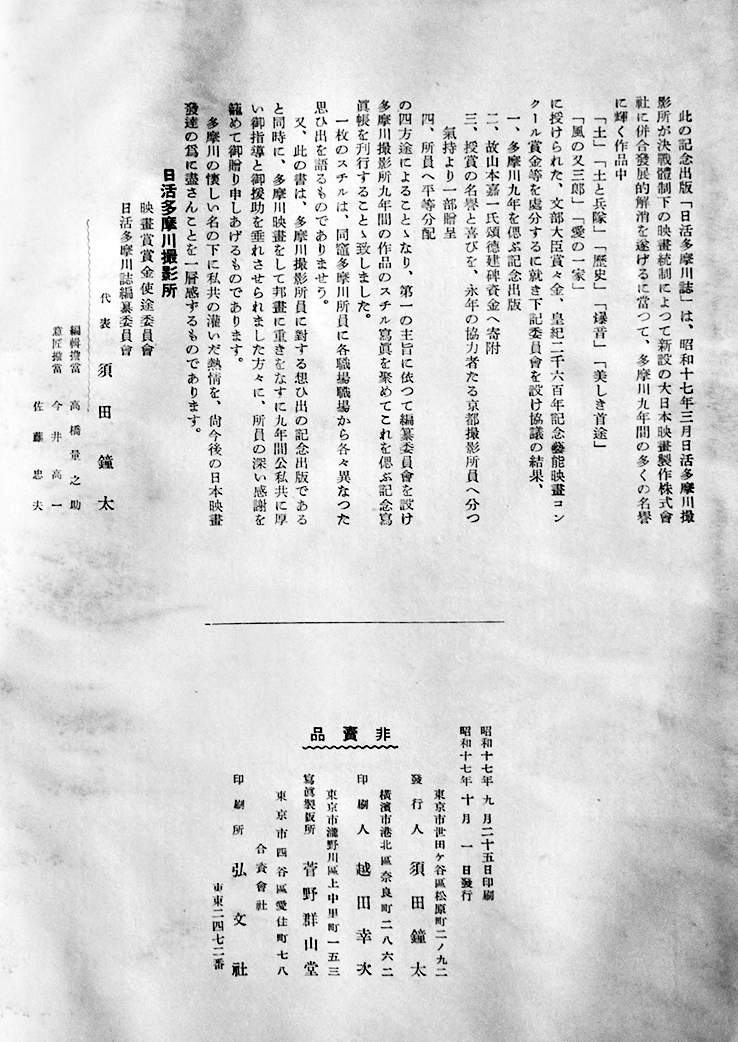 此の記念出版「日活多摩川誌」は、昭和十七年三月日活多摩川撮
影所が決戰體制下の映畫統制によつて新設の大日本映畫製作株式會
社に併合發展的解消を遂げるに當つて、多摩川九年間の多くの名譽
に輝く作品中
「土」「土と兵隊」「歷史」「爆音」「美しき首途」
「風の又三郎」「愛の一家」
に授けられた、文部大臣賞々金、皇紀二千六百年記念藝能映畫コン
クール賞金等を處分するに就き下記委員會を設け協議の結果、
一、多摩川九年を偲ぶ記念出版
二、故山本嘉一氏頌德建碑資金へ寄附
三、授賞の名譽と喜びを、永年の協力者たる京都撮影所員へ分つ
氣持より一部贈呈
四、所員へ平等分配
の四方途によることゝなり、第一の主旨に依つて編纂委員會を設け
多摩川撮影所九年間の作品のスチル寫眞を聚めてこれを偲ぶ記念寫
眞帳を刊行することゝ致しました。
一枚のスチルは、同窓多摩川所員に各職場職場から各々異なつた
思ひ出を語るものでありませう。
又、此の書は、多摩川撮影所員に對する想ひ出の記念出版である
と同時に、多摩川映畫をして邦畫に重きをなすに九年間公私共に厚
い御指導と御援助を垂れさせられました方々に、所員の深い感謝を
籠めて御贈り申しあげるものであります。
多摩川の懷しい名の下に私共の灌いだ熱情を、尙今後の日本映畫
發達の爲に盡さんことを一層感ずるものであります。
日活多摩川撮影所
映畫賞賞金使途委員會
日活多摩川誌編纂委員會
代表 須田鐘太
編輯擔當 高橋量之助
意匠擔當 今井高一
佐藤忠夫
昭和十七年九月二十五日印刷
昭和十七年十月一日發行
非賣品
東京市世田ヶ谷區松原町二ノ九二
發行人 須田鐘太
橫濱市港北區奈良町二八六二
印刷人 越田幸次
東京市瀧野川區上中里町一五三
寫眞製版所 菅野群山堂
東京市四谷區愛住町七八
合資會社
印刷所 弘文社
東東二四七二番